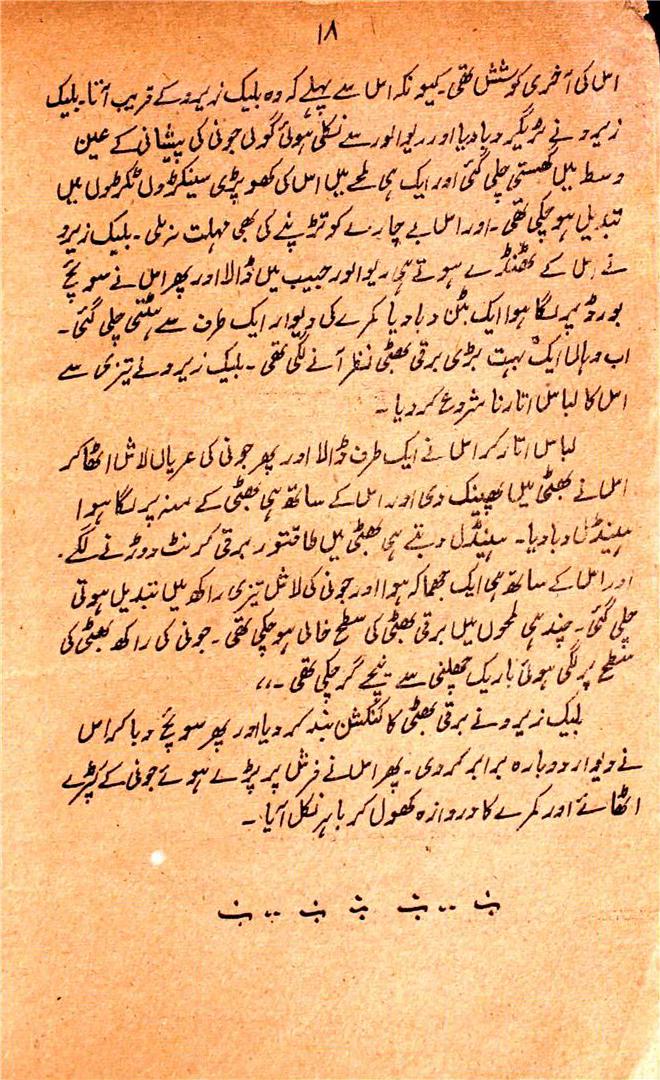 ۱۸
اس کی آخری کوشش تھی۔ کیونکہ اس سے پہلے کہ وہ بلیک زیرو کے قریب آتا۔ بلیک
زیرو نے ٹریگر دبا دیا اور ریوالور سے نکلی ہوئی گولی جونی کی پیشانی کے عین
وسط میں گھستی چلی گئی اور ایک ہی لمحے میں اس کی کھوپڑی سینکڑوں ٹکڑوں میں
تبدیل ہو چکی تھی۔ اور اس بے چارے کو تڑپنے کی بھی مہلت نہ ملی۔ بلیک زیرو
نے اس کے ٹھنڈے ہوتے ہی ریوالور جیب میں ڈالا اور پھر اس نے سوئچ
بورڈ پر لگا ہوا ایک بٹن دبا دیا کمرے کی دیوار ایک طرف سے ہٹتی چلی گئی۔
اب وہاں ایک بہت بڑی برقی بھٹی نظر آنے لگی تھی۔ بلیک زیرو نے تیزی سے
اس کا لباس اتارنا شروع کر دیا۔
لباس اتار کر اس نے ایک طرف ڈالا اور پھر جونی کی عریاں لاش اٹھا کر
اس نے بھٹی میں پھینک دی اور اس کے ساتھ ہی بھٹی کے منہ پر لگا ہوا
ہینڈل دبا دیا۔ ہینڈل دبتے ہی بھٹی میں طاقتور برقی کرنٹ دوڑنے لگے۔
اور اس کے ساتھ ہی ایک جھماکہ ہوا اور جونی کی لاش تیزی راکھ میں تبدیل ہوتی
چلی گئی۔ چند ہی لمحوں میں برقی بھٹی کی سطح خالی ہو چکی تھی۔ جونی کی راکھ بھٹی کی
سطح پر لگی ہوئی باریک چھلنی سے نیچے گر چکی تھی۔،،
بلیک زیرو نے برقی بھٹی کا کنکشن بند کر دیا اور پھر سوئچ دبا کر اس
نے دیوار دوبارہ برابر کر دی۔ پھر اس نے فرش پر پڑے ہوئے جونی کے کپڑے
اٹھائے اور کمرے کا دروازہ کھول کر باہر نکل آیا۔